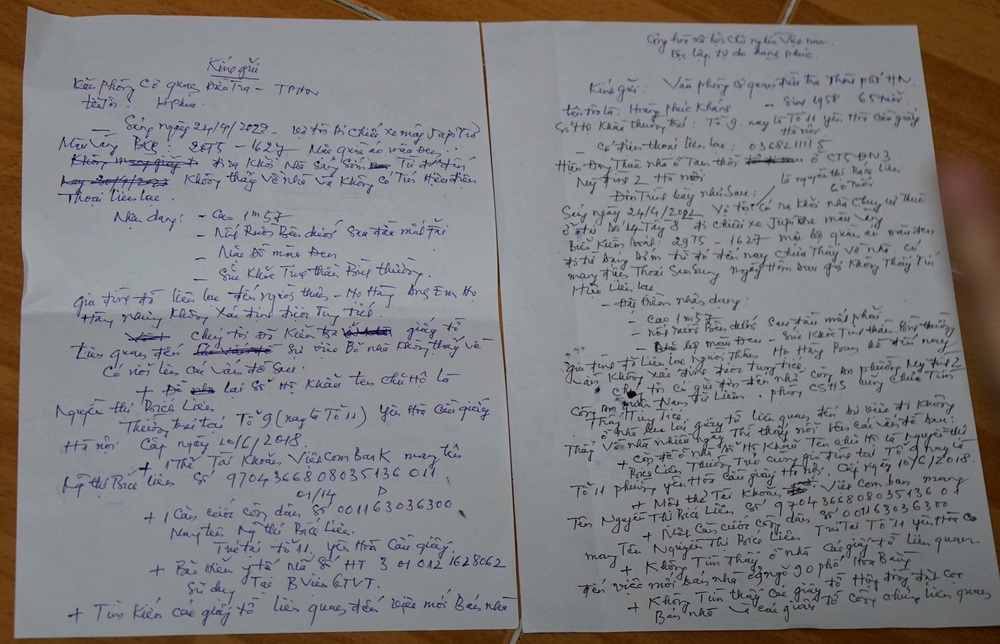 Kính gửi
Văn phòng Cơ quan Điều Tra - TPHN
Sáng ngày 24/4/2022 - vợ tôi Đi chiếc xe máy Jupiter
Màu Vàng BKS: 2975 - 1627 Mặc quần áo màu Đen
Không Từ đó đến
Không thấy Về nhà Và Không Có Tín Hiệu điện
Thoại liên lạc.
Nhận dạng: - Cao 1m57
- Nốt Ruồi Bên dưới Sau đầu mắt Phải
- Mặc Đồ màu Đen
- Sức Khỏe Tinh thần Bình thường.
Gia đình đã liên lạc đến người thân - Họ Hàng Anh Em Họ
Hàng nhưng Không Xác định được Tung Tích.
Chúng tôi Đã Kiểm tra giấy tờ
Liên quan đến Sự việc Bỏ nhà Không thấy về
Có nổi lên cái vấn đề Sau:
+ Để lại Sổ Hộ Khẩu tên chủ Hộ là
Nguyễn Thị Bích Liên
Thường trú tại Tổ 9 (nay là Tổ 11) Yên Hòa Cầu giấy
Hà Nội Cấp ngày 10/6/2018.
+ 1 Thẻ Tài Khoản VietcomBanK mang tên
Ng thị Bích liên Số 9704366808035136 011
01/14
+ 1 Căn cước công dân Số 001163036300
Mang tên Ng thị Bích Liên.
Trú tại tổ 11, Yên Hòa Cầu giấy
+ Bảo hiểm y tế Mã Số HT 3 01 012 1628062
Sử dụng Tại BViện GTVT.
+ Tìm Kiếm các giấy tờ liên quan đến việc mới Bán nhà
Cộng hòa xã hội Chủ nghĩa Việt Nam
Độc lập tự do hạnh phúc
Kính gửi: Văn phòng Cơ quan điều tra Thành phố HN
tên tôi là: Hoàng Phúc Kháng - Sinh 1958 65 tuổi
Số Hộ Khẩu thường trú: Tổ 9 nay là Tổ 11 Yên Hòa Cầu giấy
Hà nội
- Có điện thoại liên lạc: 0368211115
Hiện Đang Thuê nhà ở Tạm thời ở CT5 ĐN3
Mỹ Đình 2 Hà nội
là nguyễn thị Bích Liên
Đơn Trình bày như Sau:
Sáng ngày 24/4/2022 Vợ tôi có ra Khỏi nhà Chung cư Thuê
đi chiếc xe Jupiter màu vàng
Biển Kiểm Soát: 2975 - 1627 mặc bộ quần áo màu đen
từ đó đến nay chưa Thấy Về nhà có
mang điện Thoại SamSung Không Thấy Tín
Hiệu Liên lạc
- Đặc điểm nhận dạng:
- Cao 1m57
- Nốt ruồi Bên dưới Sau đầu mắt phải
- màu Đen - Sức Khỏe Tinh thần Bình thường
gia đình đã liên lạc Người Thân Họ Hàng đến nay
vẫn Không Xác định được tung tích
tôi Có gửi đơn đến Công An phường Mỹ Đình 2
Công An quận Nam Từ Liêm. phòng CS113 cũng chưa Tìm
Thấy Tung Tích
ở nhà lưu lại giấy tờ liên quan đến Sự việc đi Không
Thấy Về nhà nhiều ngày Thì thấy nổi lên cái Vấn đề Sau:
+ Còn để ở nhà Sổ Hộ Khẩu Tên chủ Hộ là Nguyễn Thị
Bích Liên Thường Trú cùng gia đình tại Tổ 9 nay là
Tổ 11 phường Yên Hòa Cầu giấy Hà Nội. Cấp ngày 10/6/2018.
+ Một thẻ Tài Khoản Vietcombank mang
Tên Nguyễn Thị Bích Liên Số 9704366808035136 01
+ Một Căn cước Công dân Số 001163036300
mang Tên Nguyễn Thị Bích Liên Trú Tại Tổ 11 Yên Hòa
+ Không Tìm Thấy ở nhà Các giấy tờ Liên quan
đến việc mới bán nhà ở ngõ 90 phố Hoa Bằng
+ Không Tìm thấy các giấy tờ Hợp đồng đặt cọc
Bán nhà và các giấy tờ công chứng liên quan